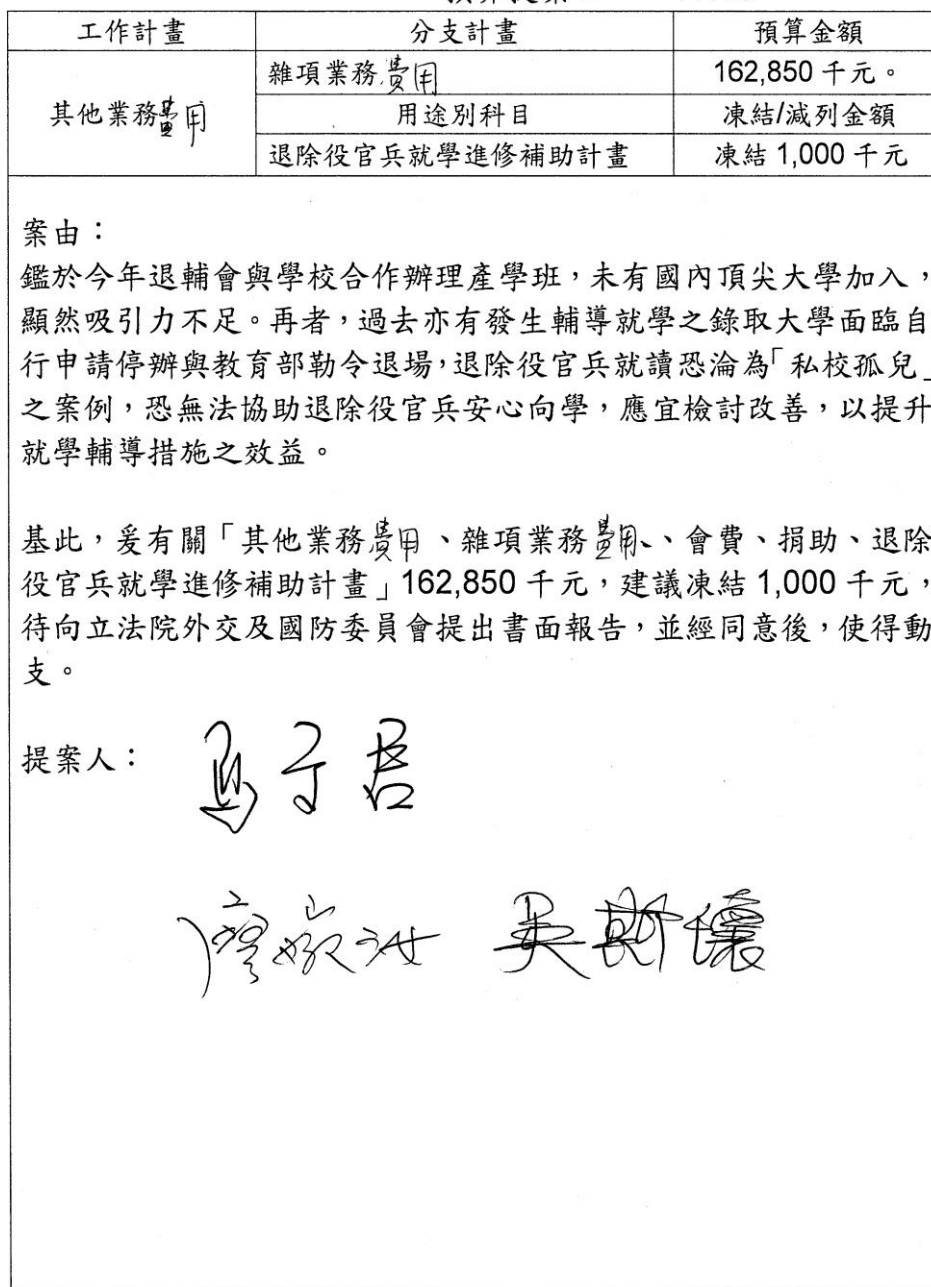 工作計畫 分支計畫 預算金額
其他業務費用 雜項業務費用 162,850 千元。
用途別科目 凍結/減列金額
退除役官兵就學進修補助計畫 凍結 1,000 千元
案由：
鑑於今年退輔會與學校合作辦理產學班，未有國內頂尖大學加入，
顯然吸引力不足。再者，過去亦有發生輔導就學之錄取大學面臨自
行申請停辦與教育部勒令退場，退除役官兵就讀恐淪為「私校孤兒」
之案例，恐無法協助退除役官兵安心向學，應宜檢討改善，以提升
就學輔導措施之效益。
基此，爰有關「其他業務費用、雜項業務費用、、會費、捐助、退除
役官兵就學進修補助計畫」162,850 千元，建議凍結 1,000 千元，
待向立法院外交及國防委員會提出書面報告，並經同意後，使得動
支。
提案人：
馬文君
廖婉汝 吳斯懷